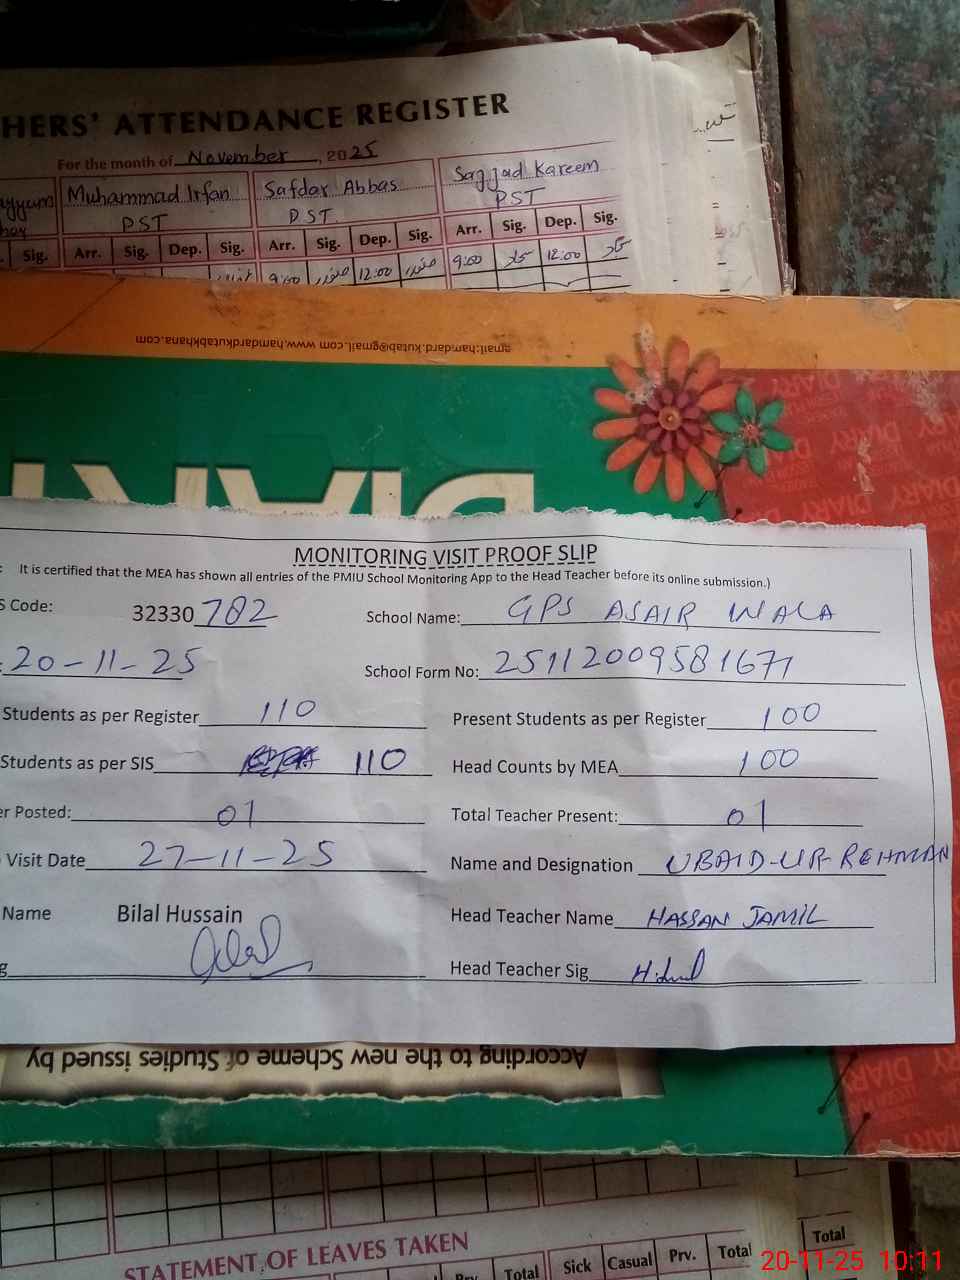 HERS' ATTENDANCE REGISTER
For the month of November, 2025
ayyum Muhammad Irfan Safdar Abbas Sajjad Kareem
PST PST PST
Sig. Arr. Sig. Dep. Sig. Arr. Sig. Dep. Sig. Arr. Sig. Dep. Sig.
9:00 12:00 9:00 12:00
email:hamdard.kutabkhana@gmail.com www.hamdardkutabkhana.com
DIARY
MONITORING VISIT PROOF SLIP
: It is certified that the MEA has shown all entries of the PMIU School Monitoring App to the Head Teacher before its online submission.)
S Code: 32330782 School Name: GPS ASAIR WALA
: 20-11-25 School Form No: 25112009581671
Students as per Register 110 Present Students as per Register 100
Students as per SIS 110 Head Counts by MEA 100
er Posted: 01 Total Teacher Present: 01
Visit Date 27-11-25 Name and Designation UBAID-UR-REHMAN
Name Bilal Hussain Head Teacher Name HASSAN JAMIL
g Head Teacher Sig
According to the new Scheme of Studies issued by
STATEMENT OF LEAVES TAKEN
Prv. Total Sick Casual Prv. Total Total
20-11-25 10:11